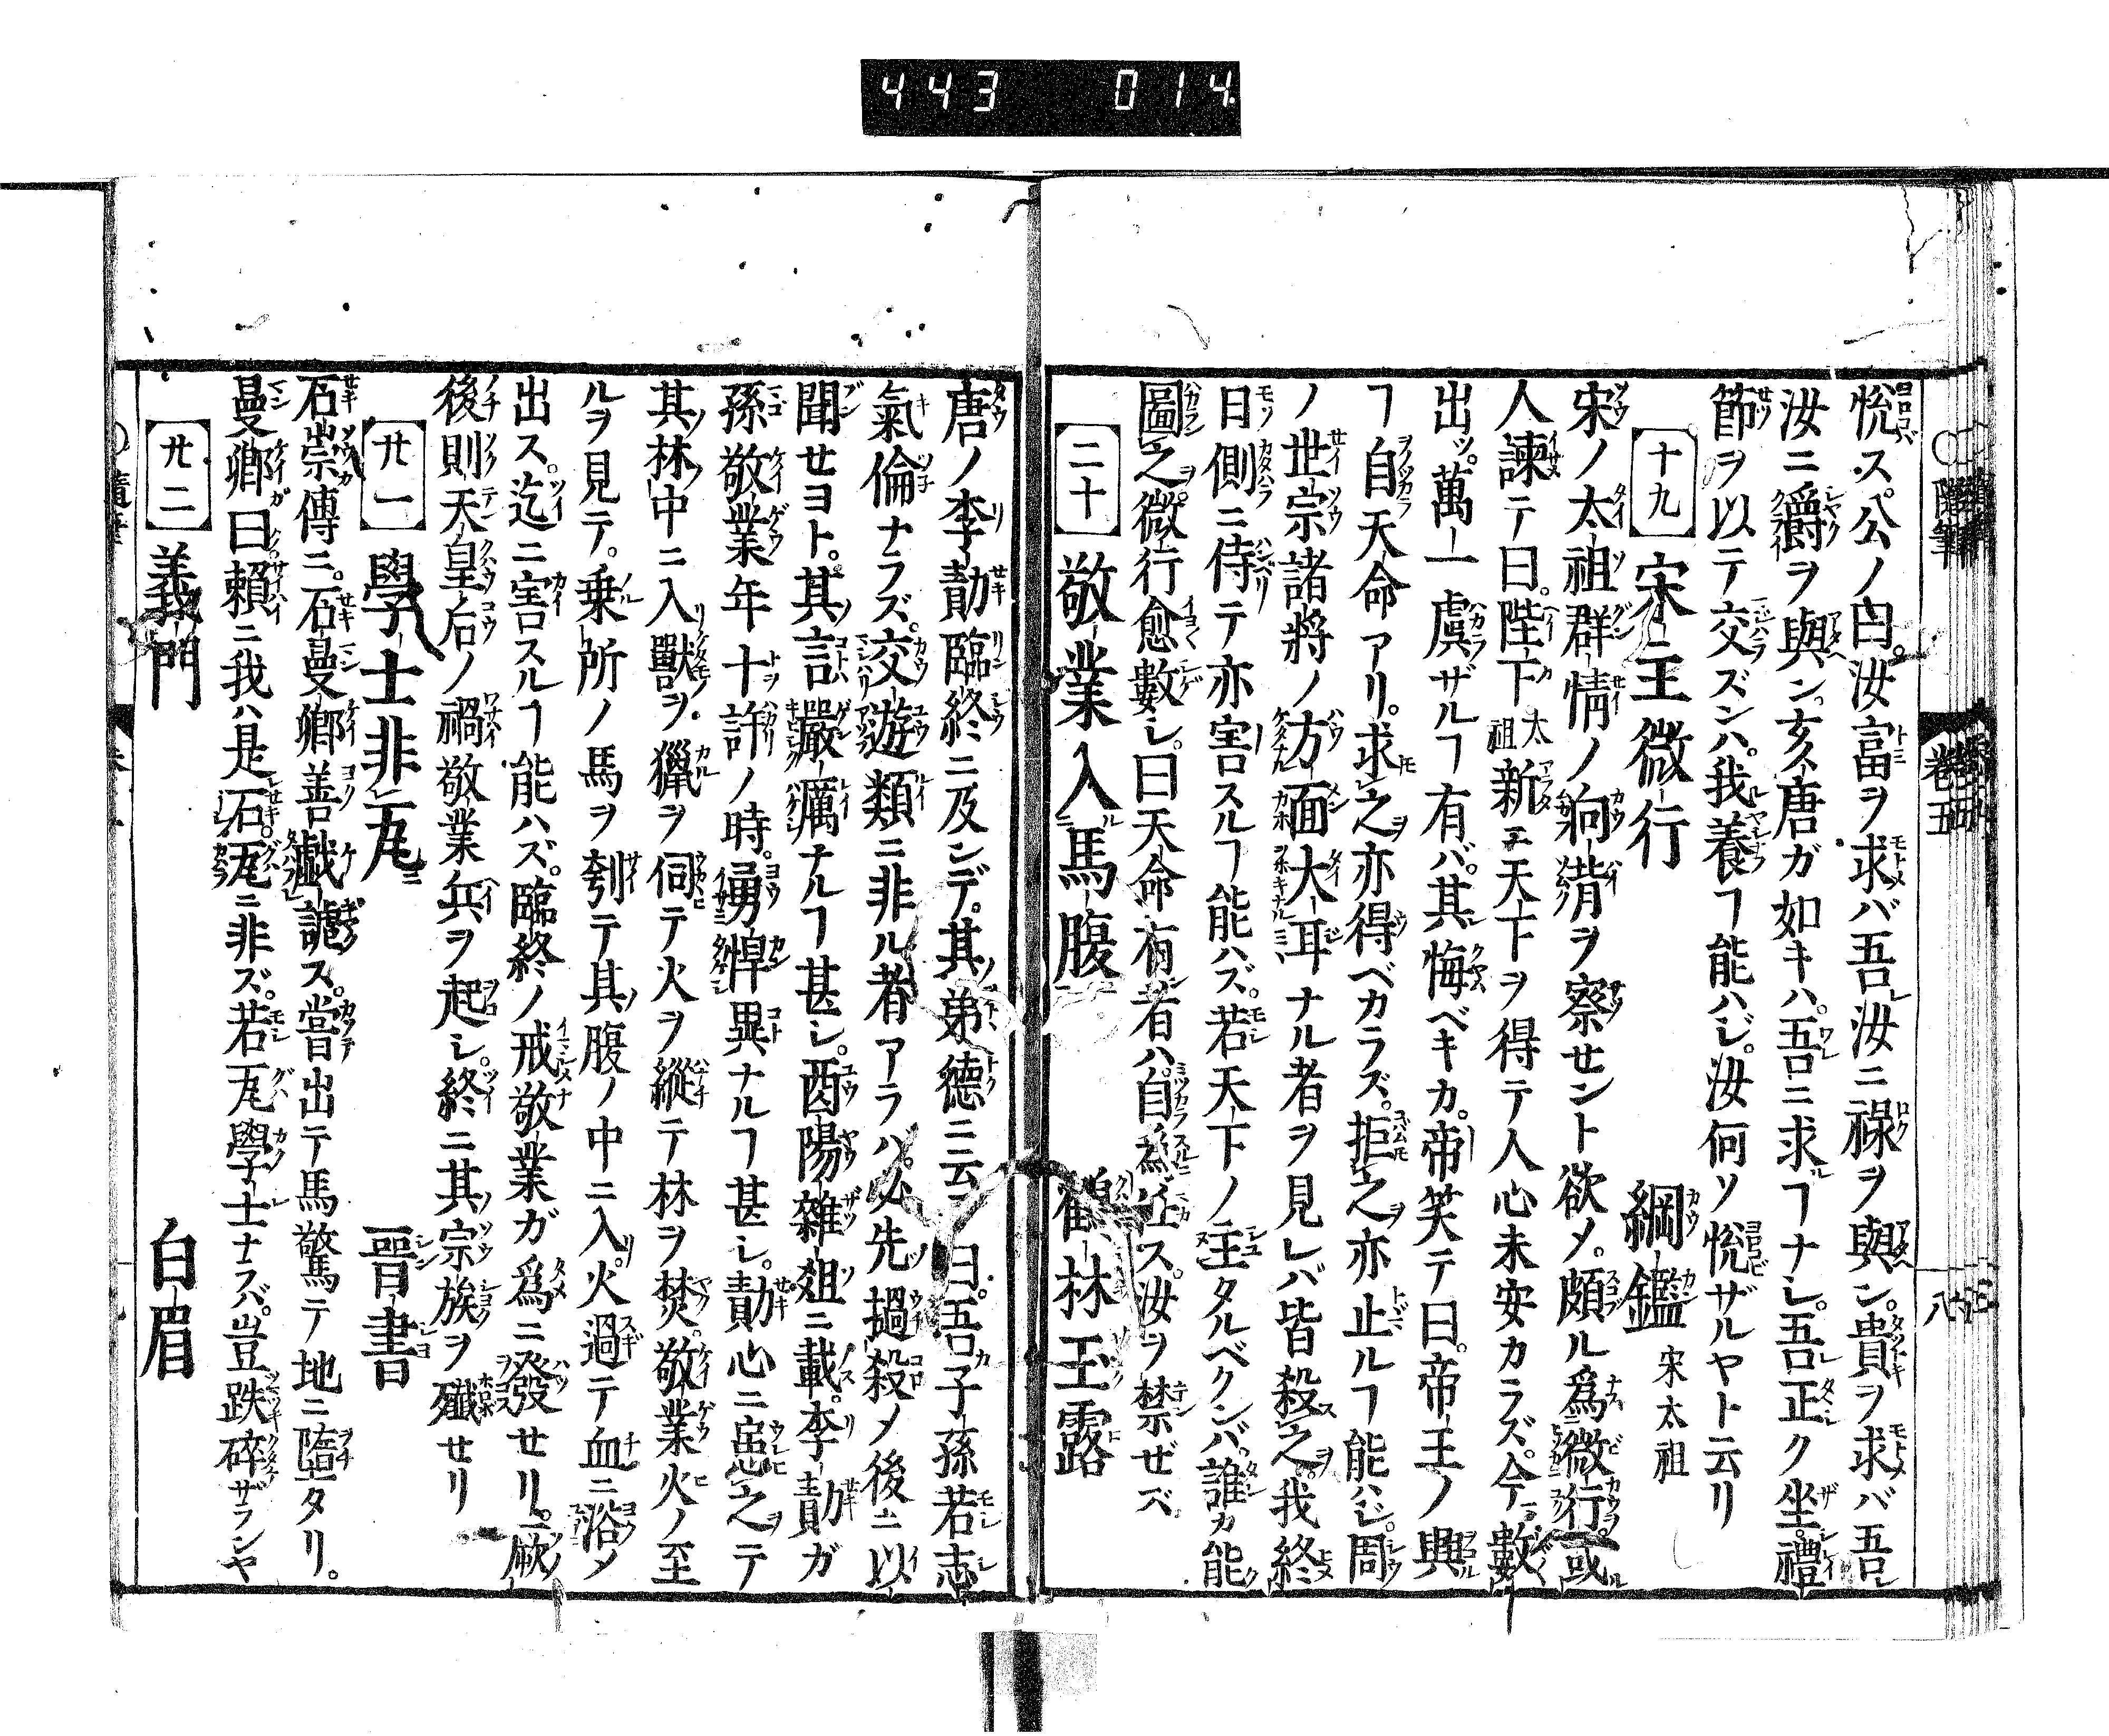 443 014
悦ス公ノ曰。汝富ヲ求バ吾汝ニ禄ヲ與ン。貴ヲ求バ吾
汝ニ爵ヲ與ン。亥唐ガ如キハ。吾ニ求ヿナシ。吾正ク坐。禮
節ヲ以テ交ズンハ。我養ヿ能ハジ。汝何ソ悦ザルヤト云リ
十九 宋主微行 綱鑑 宋太祖
宋ノ太祖群情ノ向背ヲ察セント欲メ。頗ル爲微行。或
人諫テ曰。陛下太祖新ニ天下ヲ得テ人心未安カラズ。今數
出ッ。萬一虞ザルヿ有バ。其悔ベキカ。帝笑テ曰。帝王ノ興
ヿ自天命アリ。求之亦得ベカラズ。拒之亦止ルヿ能ハジ。周
ノ世宗諸將ノ方面大耳ナル者ヲ見レバ皆殺之。我終
日側ニ侍テ亦害スルヿ能ハズ。若天下ノ主タルベクンバ。誰カ能
圖之。微行愈數シ。曰天命有者ハ。自爲任ス。汝ヲ禁ゼズ
二十 敬業入馬腹 鶴林玉露
唐ノ李勣臨終ニ及ンデ。其弟德ニ云曰。吾子孫若志
氣倫ナラズ。交遊類ニ非ル者アラハ。必先撾殺メ後ニ以
聞セヨト。其言嚴厲ナルヿ甚シ。酉陽雜俎ニ載。李勣ガ
孫敬業年十許ノ時。勇悍異ナルヿ甚シ。勣心ニ患之テ
其林中ニ入獸ヲ獵ヲ伺テ火ヲ縱テ林ヲ焚。敬業火ノ至
ルヲ見テ。乗所ノ馬ヲ刳テ其腹ノ中ニ入。火過テ血ニ浴メ
出ス。迄ニ害スルヿ能ハズ。臨終ノ戒敬業ガ爲ニ發セリ。厥
後則天皇后ノ禍敬業兵ヲ起シ。終ニ其宗族ヲ殲セリ
廿一 學士非瓦 晉書
石崇傳ニ。石曼卿善戲謔ス。嘗出テ馬驚テ地ニ墮タリ。
曼卿曰賴ニ我ハ是石。瓦ニ非ズ。若瓦學士ナラバ。豈跌碎ザランヤ
廿二 義門 白眉